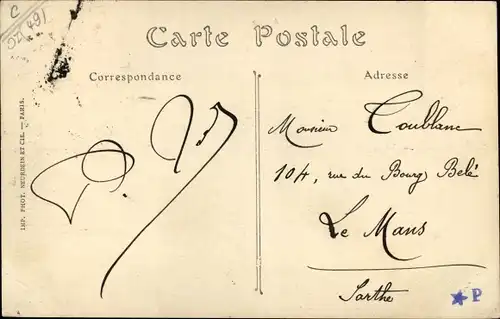 Carte Postale
Correspondance
Adresse
Monsieur Coublanc
104, rue du Bourg Belé
Le Mans
Sarthe
IMP. PHOT. NEURDEIN ET CIE. — PARIS.
P
C